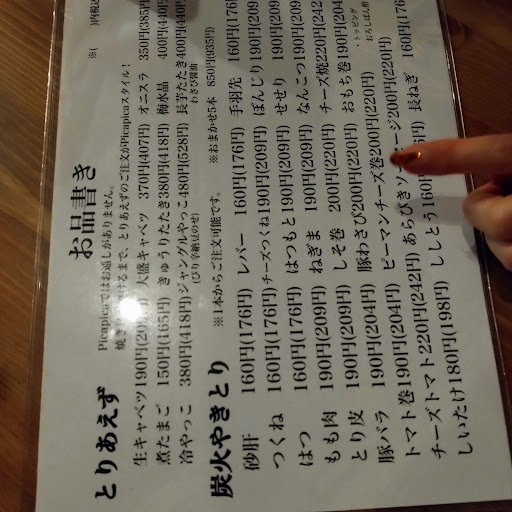 お品書き
※( )内税込
Picapicaではお通しがありません。
焼きあがるまで、とりあえずのご注文がPicapicaスタイル！
とりあえず
生キャベツ190円 大盛キャベツ 370円(407円) オニスラ 350円(385円)
煮たまご 150円(165円) きゅうりたたき380円(418円) 梅水晶 400円(440円)
冷やっこ 380円(418円) ジャングルやっこ480円(528円) 長芋たたき400円(440円)
(ぴり辛納豆のせ) わさび醤油
炭火やきとり ※1本からご注文可能です。 ※おまかせ5本 850円(935円)
砂肝 160円(176円) レバー 160円(176円) 手羽先 160円(176円
つくね 160円(176円) チーズつくね190円(209円) ぼんじり190円(209
はつ 160円(176円) はつもと190円(209円) せせり 190円(209
もも肉 190円(209円) ねぎま 190円(209円) なんこつ190円(209
とり皮 190円(209円) しそ巻 200円(220円) チーズ焼220円(242
豚バラ 190円(204円) 豚わさび200円(220円) おもち巻190円(204
・トッピング おろしぽん酢
トマト巻190円(204円) ピーマンチーズ巻200円(220円)
チーズトマト220円(242円) あらびきソーセージ200円(220円)
しいたけ180円(198円) ししとう160円 長ねぎ 160円(176